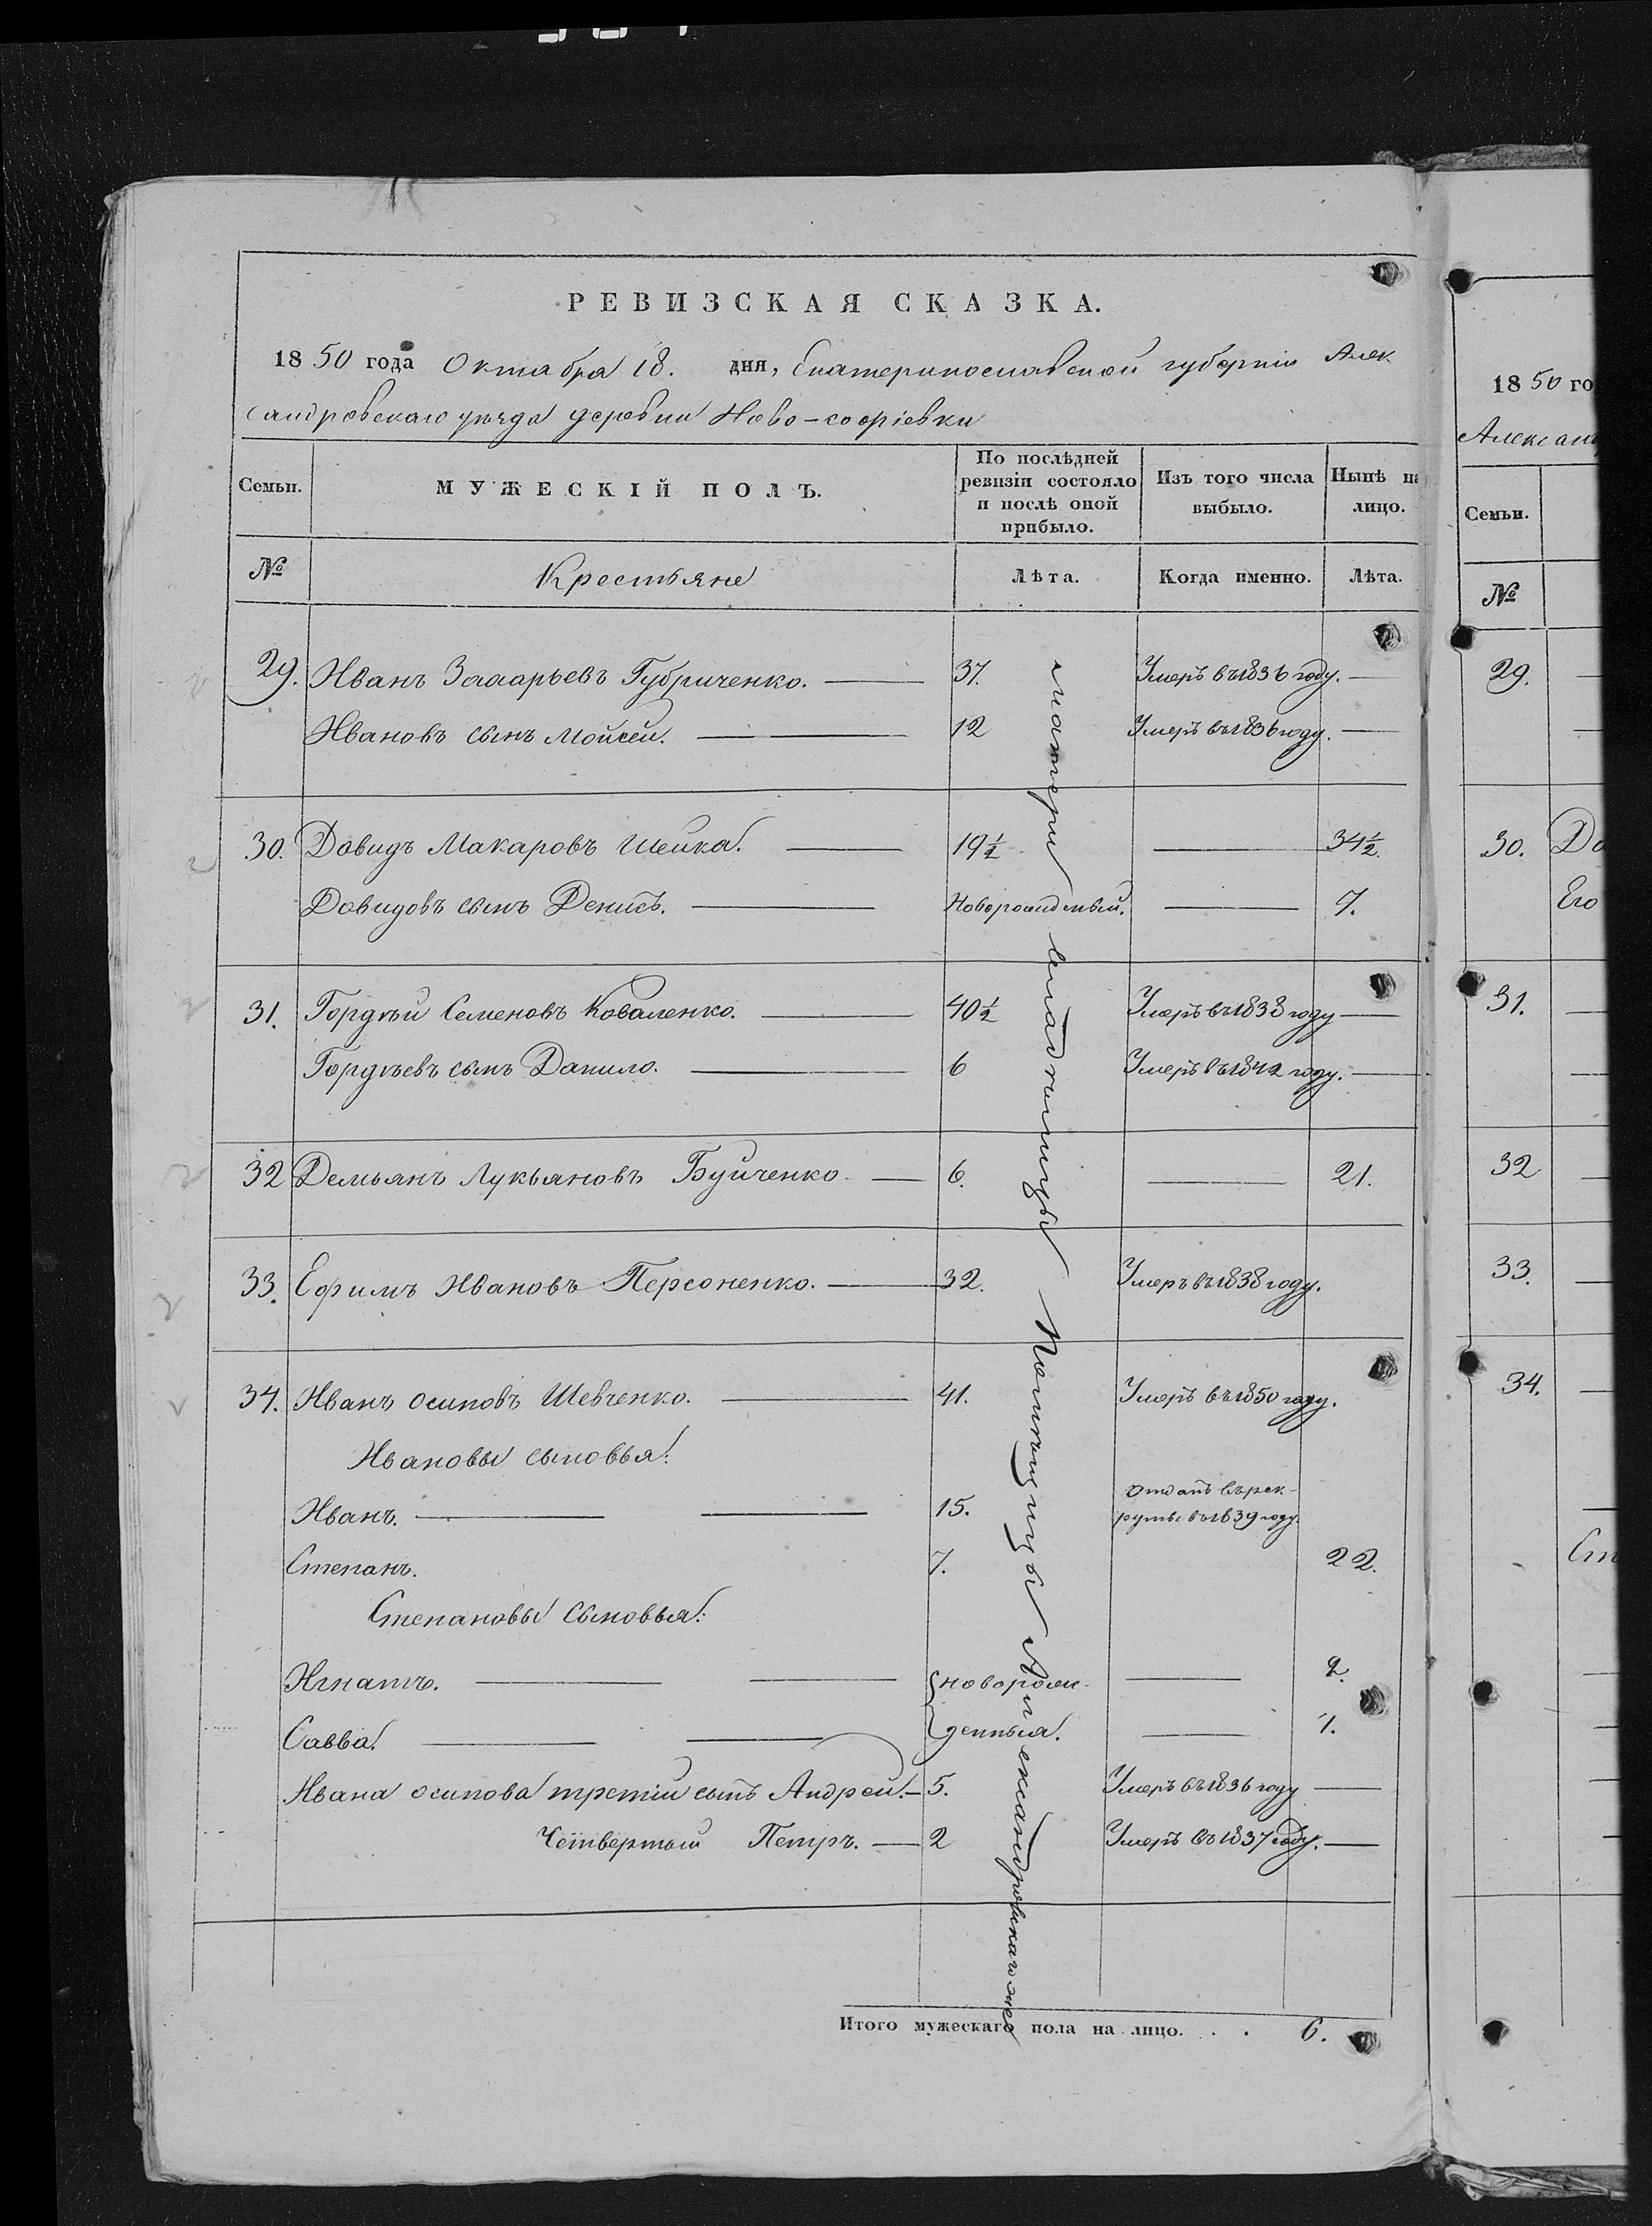 РЕВИЗСКАЯ СКАЗКА.
1850 года Октября 18. дня, Екатеринославской губерніи Алек
сандровскаго уѣзда деревни Ново-софіевки
Семьи. МУЖЕСКІЙ ПОЛЪ. По послѣдней ревизіи состояло и послѣ оной прибыло. Изъ того числа выбыло. Нынѣ на лицо.
№ Крестьяне Лѣта. Когда именно. Лѣта.
29. Иванъ Захарьевъ Губриченко. 37. Умеръ въ 1836 году.
Ивановъ сынъ Мойсей. 12 Умеръ въ 1836 году.
30. Давидъ Макаровъ Шейка. 19½ 34½.
Давидовъ сынъ Денисъ. Новорожденный. 7.
31. Гордѣй Семеновъ Коваленко. 40½ Умеръ въ 1838 году
Гордѣевъ сынъ Данило. 6 Умеръ въ 1842 году.
32 Демьянъ Лукьяновъ Буйченко. 6. 21.
33. Ефимъ Ивановъ Персоненко. 32. Умеръ въ 1838 году.
34. Иванъ Осиповъ Шевченко. 41. Умеръ въ 1850 году.
Ивановы сыновья:
Иванъ. 15. отданъ въ рек-
руты въ 1839 году.
Степанъ. 7. 22.
Степановы сыновья:
Игнатъ. новорож- 2.
Савва. денныя. 1.
Ивана Осипова третій сынъ Андрей. 5. Умеръ въ 1836 году
Четвертый Петръ. 2 Умеръ въ 1837 году.
Итого мужескаго пола на лицо. . . 6.
матери владѣлицы Помѣщицы Александровскаго
1850 го
Алексан
Семьи.
№
29.
30. До
Его
31.
32
33.
34.
Ст